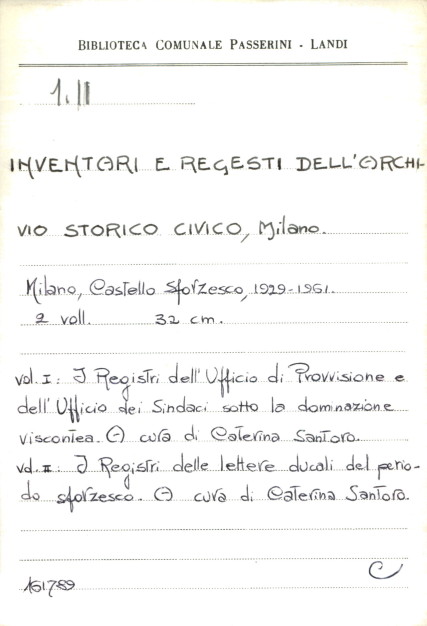 BIBLIOTECA COMUNALE PASSERINI - LANDI
1.II
INVENTARI E REGESTI DELL'ARCHI-
VIO STORICO CIVICO, Milano.
Milano, Castello Sforzesco, 1929-1961.
2 voll. 32 cm.
vol. I: I Registri dell'Ufficio di Provvisione e
dell'Ufficio dei Sindaci sotto la dominazione
viscontea. A cura di Caterina Santoro.
vol. II: I Registri delle lettere ducali del perio-
do sforzesco. A cura di Caterina Santoro.
161789
C